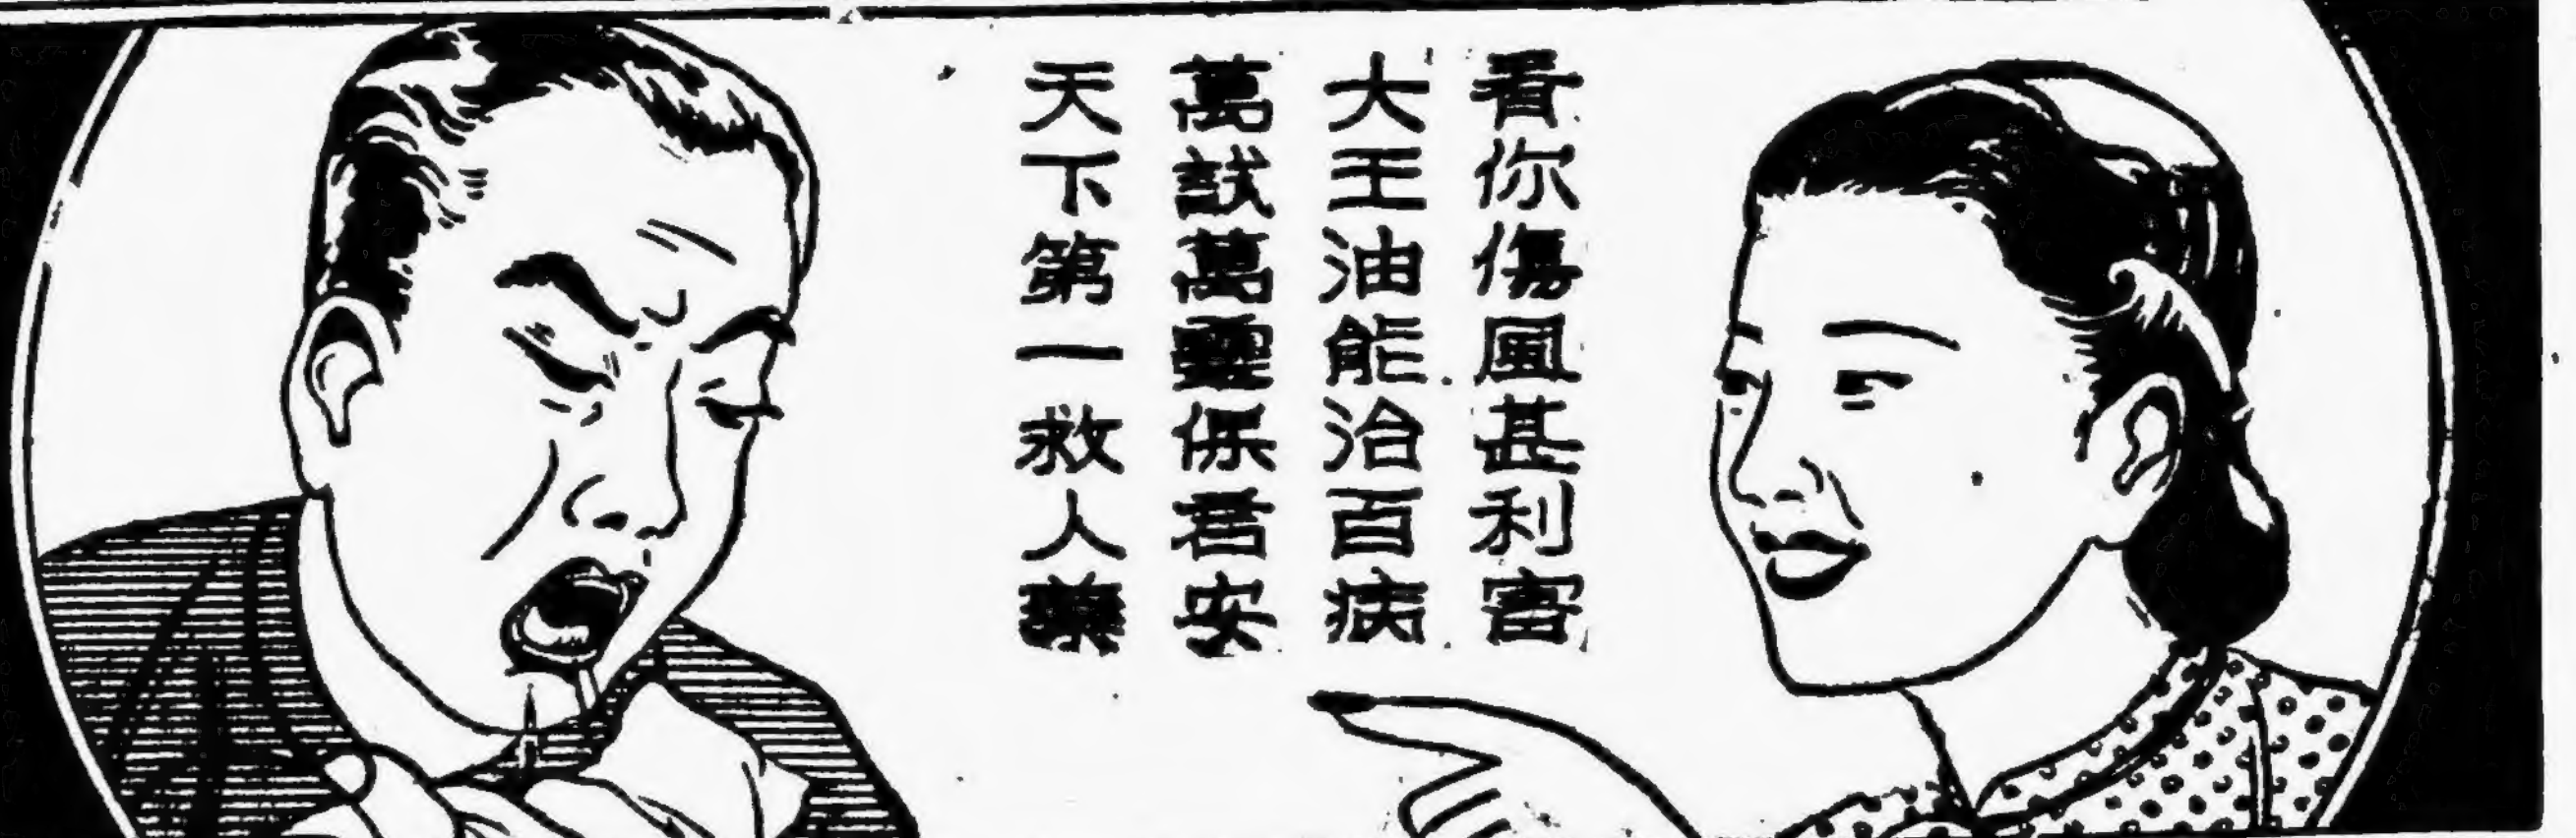 看你傷風甚利害
大王油能治百病
萬試萬靈保君安
天下第一救人藥